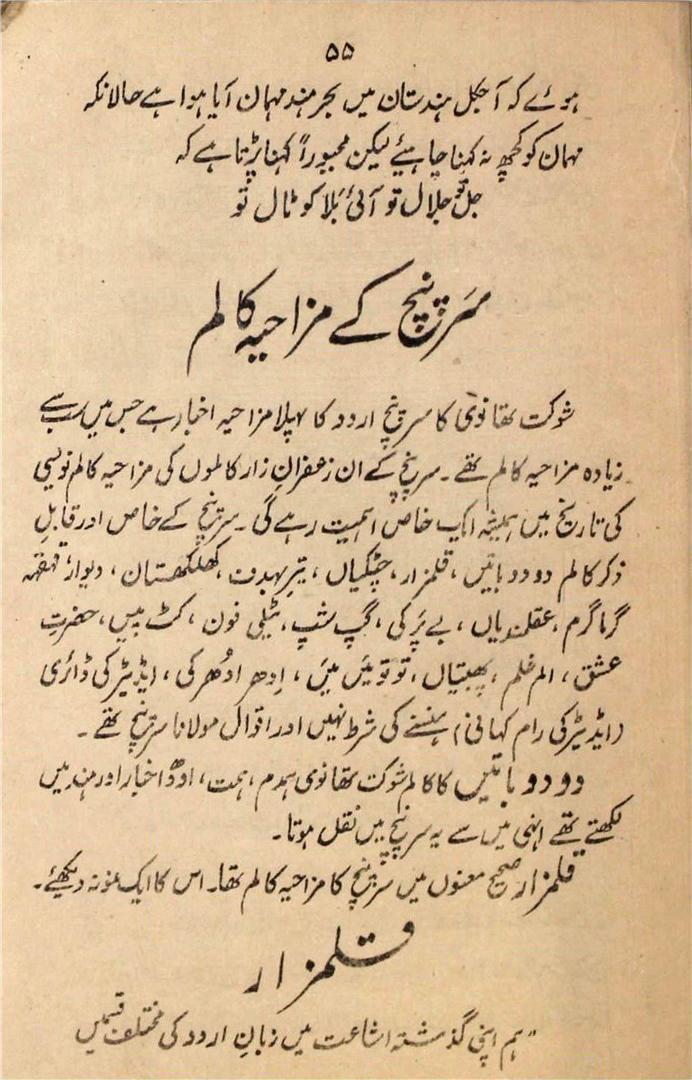 ۵۵
ہوئے کہ آجکل ہندستان میں بحر ہند مہمان آیا ہوا ہے حالانکہ
مہمان کو کچھ نہ کہنا چاہیئے لیکن مجبوراً کہنا پڑتا ہے کہ
جل تو جلال تو آئی بَلا کو ٹال تو
سَرپنچ کے مزاحیہ کالم
شوکت تھانوی کا سرپنچ اردو کا پہلا مزاحیہ اخبار ہے جس میں سب سے
زیادہ مزاحیہ کالم تھے۔ سرپنچ کے ان زعفران زار کالموں کی مزاحیہ کالم نویسی
کی تاریخ میں ہمیشہ ایک خاص اہمیت رہے گی۔ سرپنچ کے خاص اور قابلِ
ذکر کالم دو دو باتیں، قلمزار، چٹکیاں، تیر بہدف، کھلکھستان، دیوارِ قہقہہ
گرما گرم، عقلمندیاں، بے پَر کی، گپ شپ، ٹیلی فون، کٹ پیس، حضرتِ
عشق، الم غلم، پھبتیاں، تو تو میَں میَں، اِدھر اُدھر کی، ایڈیٹر کی ڈائری
(ایڈیٹر کی رام کہانی) ہنسنے کی شرط نہیں اور اقوال مولانا سرپنچ تھے۔
دو دو باتیں کا کالم شوکت تھانوی ہمدم، ہمت، اودھ اخبار اور ہند میں
لکھتے تھے انہی میں سے یہ سرپنچ میں نقل ہوتا۔
قلمزار صحیح معنوں میں سرپنچ کا مزاحیہ کالم تھا۔ اس کا ایک نمونہ دیکھیئے۔
قلمزار
"ہم اپنی گذشتہ اشاعت میں زبانِ اردو کی مختلف قسمیں